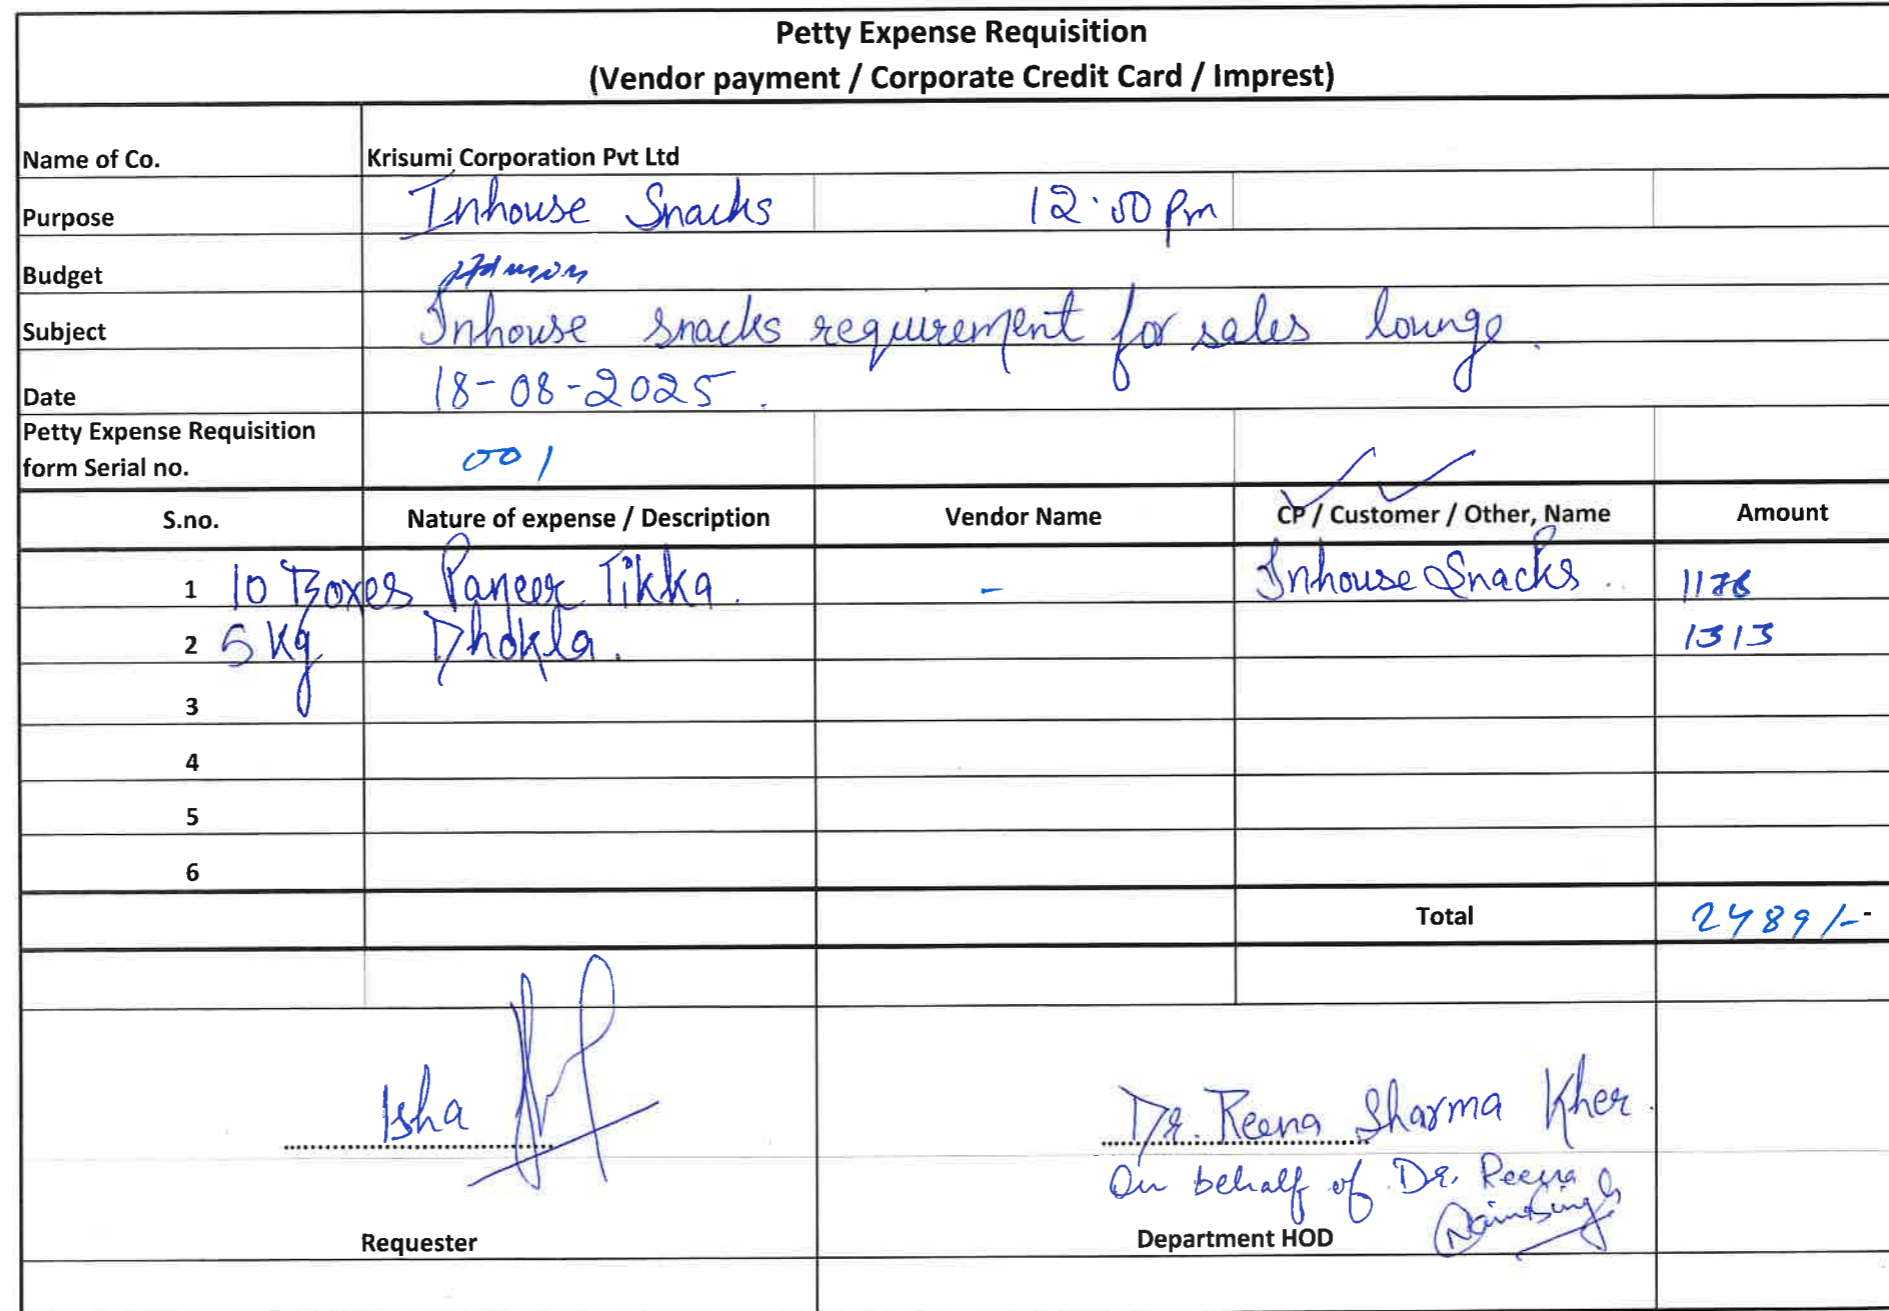 Petty Expense Requisition
(Vendor payment / Corporate Credit Card / Imprest)
Name of Co. Krisumi Corporation Pvt Ltd
Purpose Inhouse Snacks 12:00 Pm
Budget
Subject Inhouse snacks requirement for sales lounge.
Date 18-08-2025.
Petty Expense Requisition
form Serial no. 001
S.no. Nature of expense / Description Vendor Name CP / Customer / Other, Name Amount
1 10 Boxes Paneer Tikka. - Inhouse Snacks. 1176
2 5 Kg Dhokla. 1313
3
4
5
6
Total 2489/-
Isha Dr. Reena Sharma Kher.
On behalf of Dr. Reena
Requester Department HOD